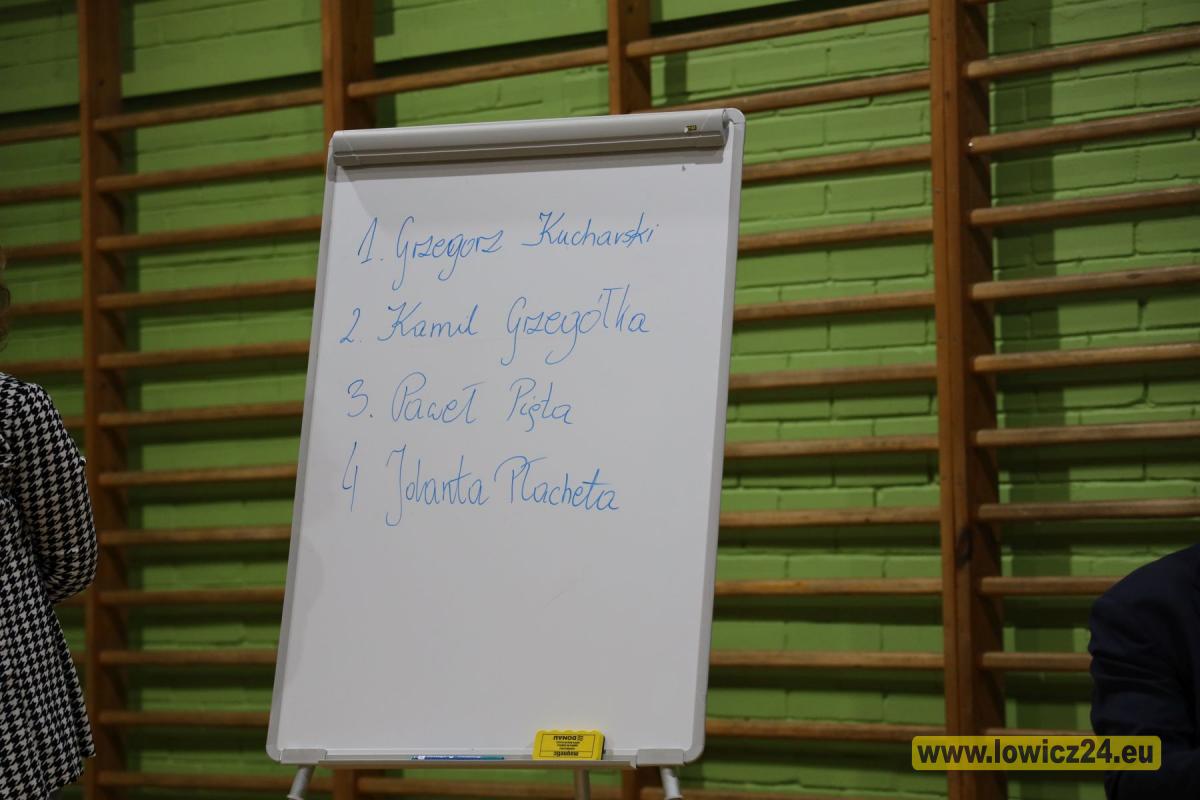 1. Grzegorz Kucharski
2. Kamil Grzegółka
3. Paweł Pięta
4 Jolanta Płacheta
DONAU
magnetic
www.lowicz24.eu